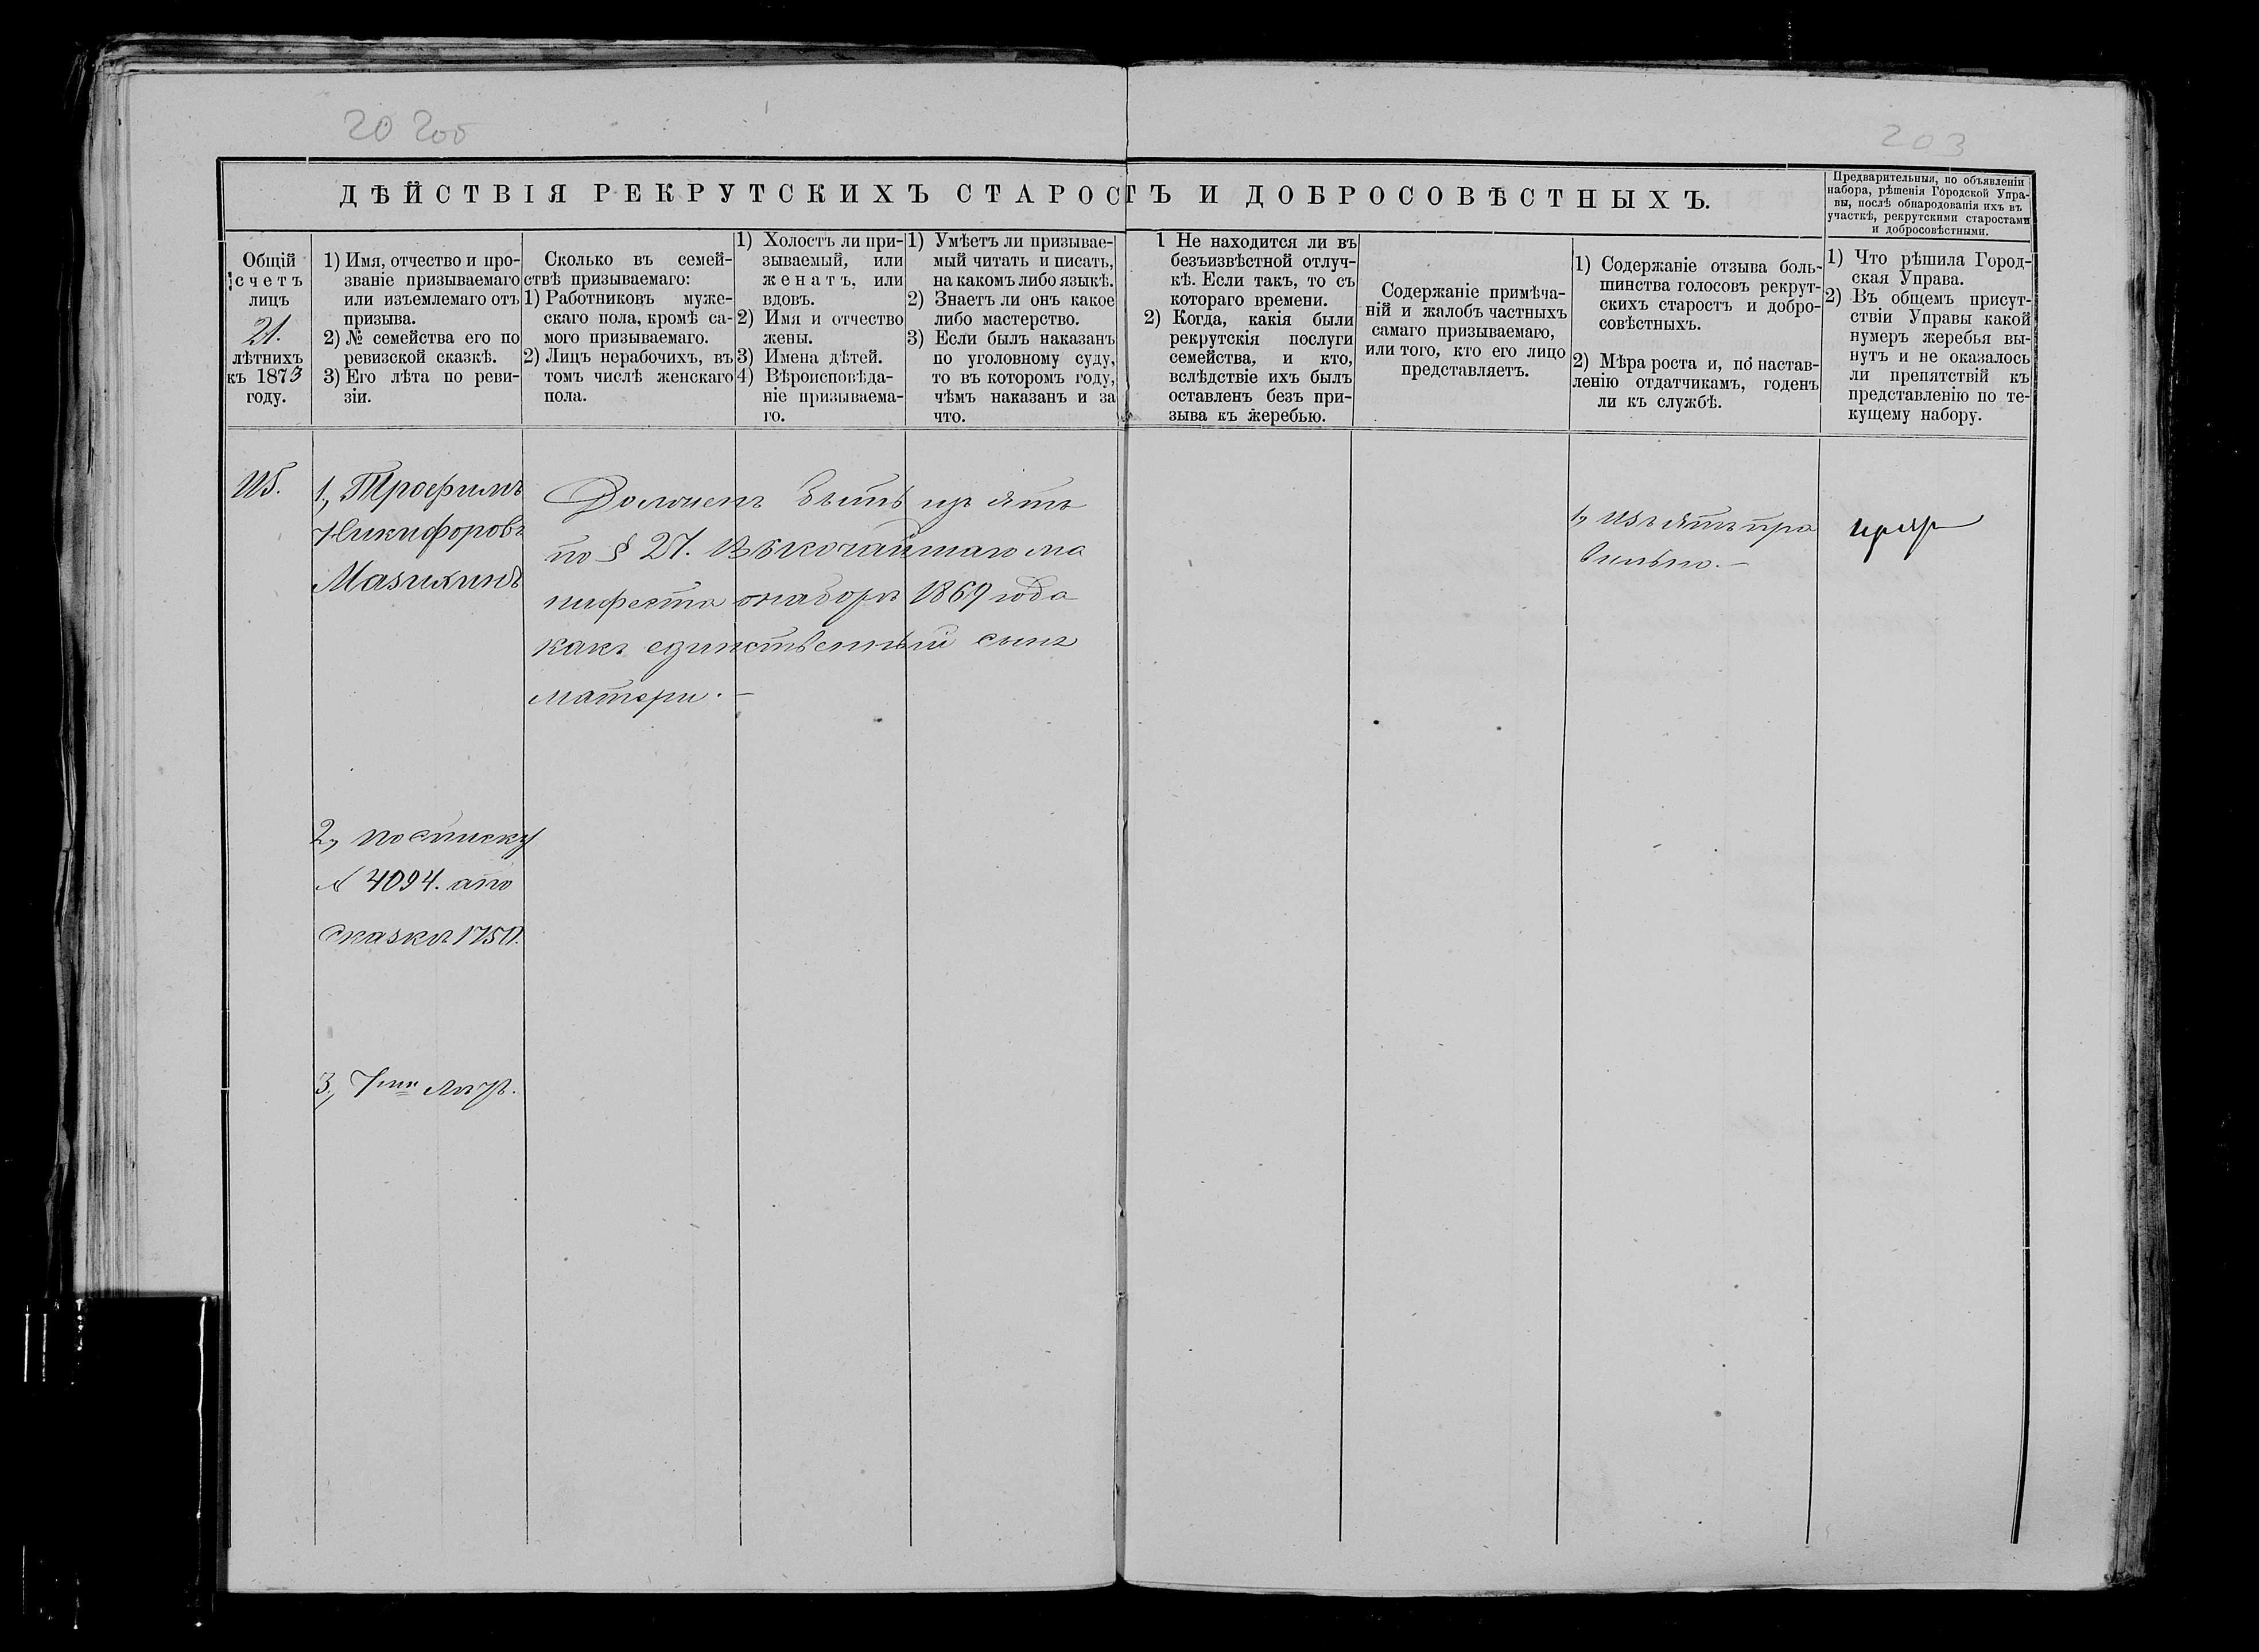 20 200
203
ДѢЙСТВІЯ РЕКРУТСКИХЪ СТАРОСТЪ И ДОБРОСОВѢСТНЫХЪ.
Предварительныя, по объявленіи
набора, рѣшенія Городской Упра-
вы, послѣ обнародованія ихъ въ
участкѣ, рекрутскими старостами
и добросовѣстными.
Общій
счетъ
лицъ
21.
лѣтнихъ
къ 1873
году.
1) Имя, отчество и про-
званіе призываемаго
или изъемлемаго отъ
призыва.
2) № семейства его по
ревизской сказкѣ.
3) Его лѣта по реви-
зіи.
Сколько въ семей-
ствѣ призываемаго:
1) Работниковъ муже-
скаго пола, кромѣ са-
мого призываемаго.
2) Лицъ нерабочихъ, въ
томъ числѣ женскаго
пола.
1) Холостъ ли при-
зываемый, или
женатъ, или
вдовъ.
2) Имя и отчество
жены.
3) Имена дѣтей.
4) Вѣроисповѣда-
ніе призываема-
го.
1) Умѣетъ ли призывае-
мый читать и писать,
на какомъ либо языкѣ.
2) Знаетъ ли онъ какое
либо мастерство.
3) Если былъ наказанъ
по уголовному суду,
то въ которомъ году,
чѣмъ наказанъ и за
что.
1 Не находится ли въ
безъизвѣстной отлуч-
кѣ. Если такъ, то съ
котораго времени.
2) Когда, какія были
рекрутскія послуги
семейства, и кто,
вслѣдствіе ихъ былъ
оставленъ безъ при-
зыва къ жеребью.
Содержаніе примѣча-
ній и жалобъ частныхъ
самаго призываемаго,
или того, кто его лицо
представляетъ.
1) Содержаніе отзыва боль-
шинства голосовъ рекрут-
скихъ старостъ и добро-
совѣстныхъ.
2) Мѣра роста и, по настав-
ленію отдатчикамъ, годенъ
ли къ службѣ.
1) Что рѣшила Город-
ская Управа.
2) Въ общемъ присут-
ствіи Управы какой
нумеръ жеребья вы-
нутъ и не оказалось
ли препятствій къ
представленію по те-
кущему набору.
1, Трофимъ
Никифоровъ
Мазихинъ
2, по списку
№ 4094. а по
сказкѣ
3, 7ми лѣтъ.
Долженъ быть изъятъ
по § 27. Высочайшаго ма
нифеста о наборѣ 1869 года
какъ единственный сынъ
матери. –
1, Изъятъ пра
вильно. –